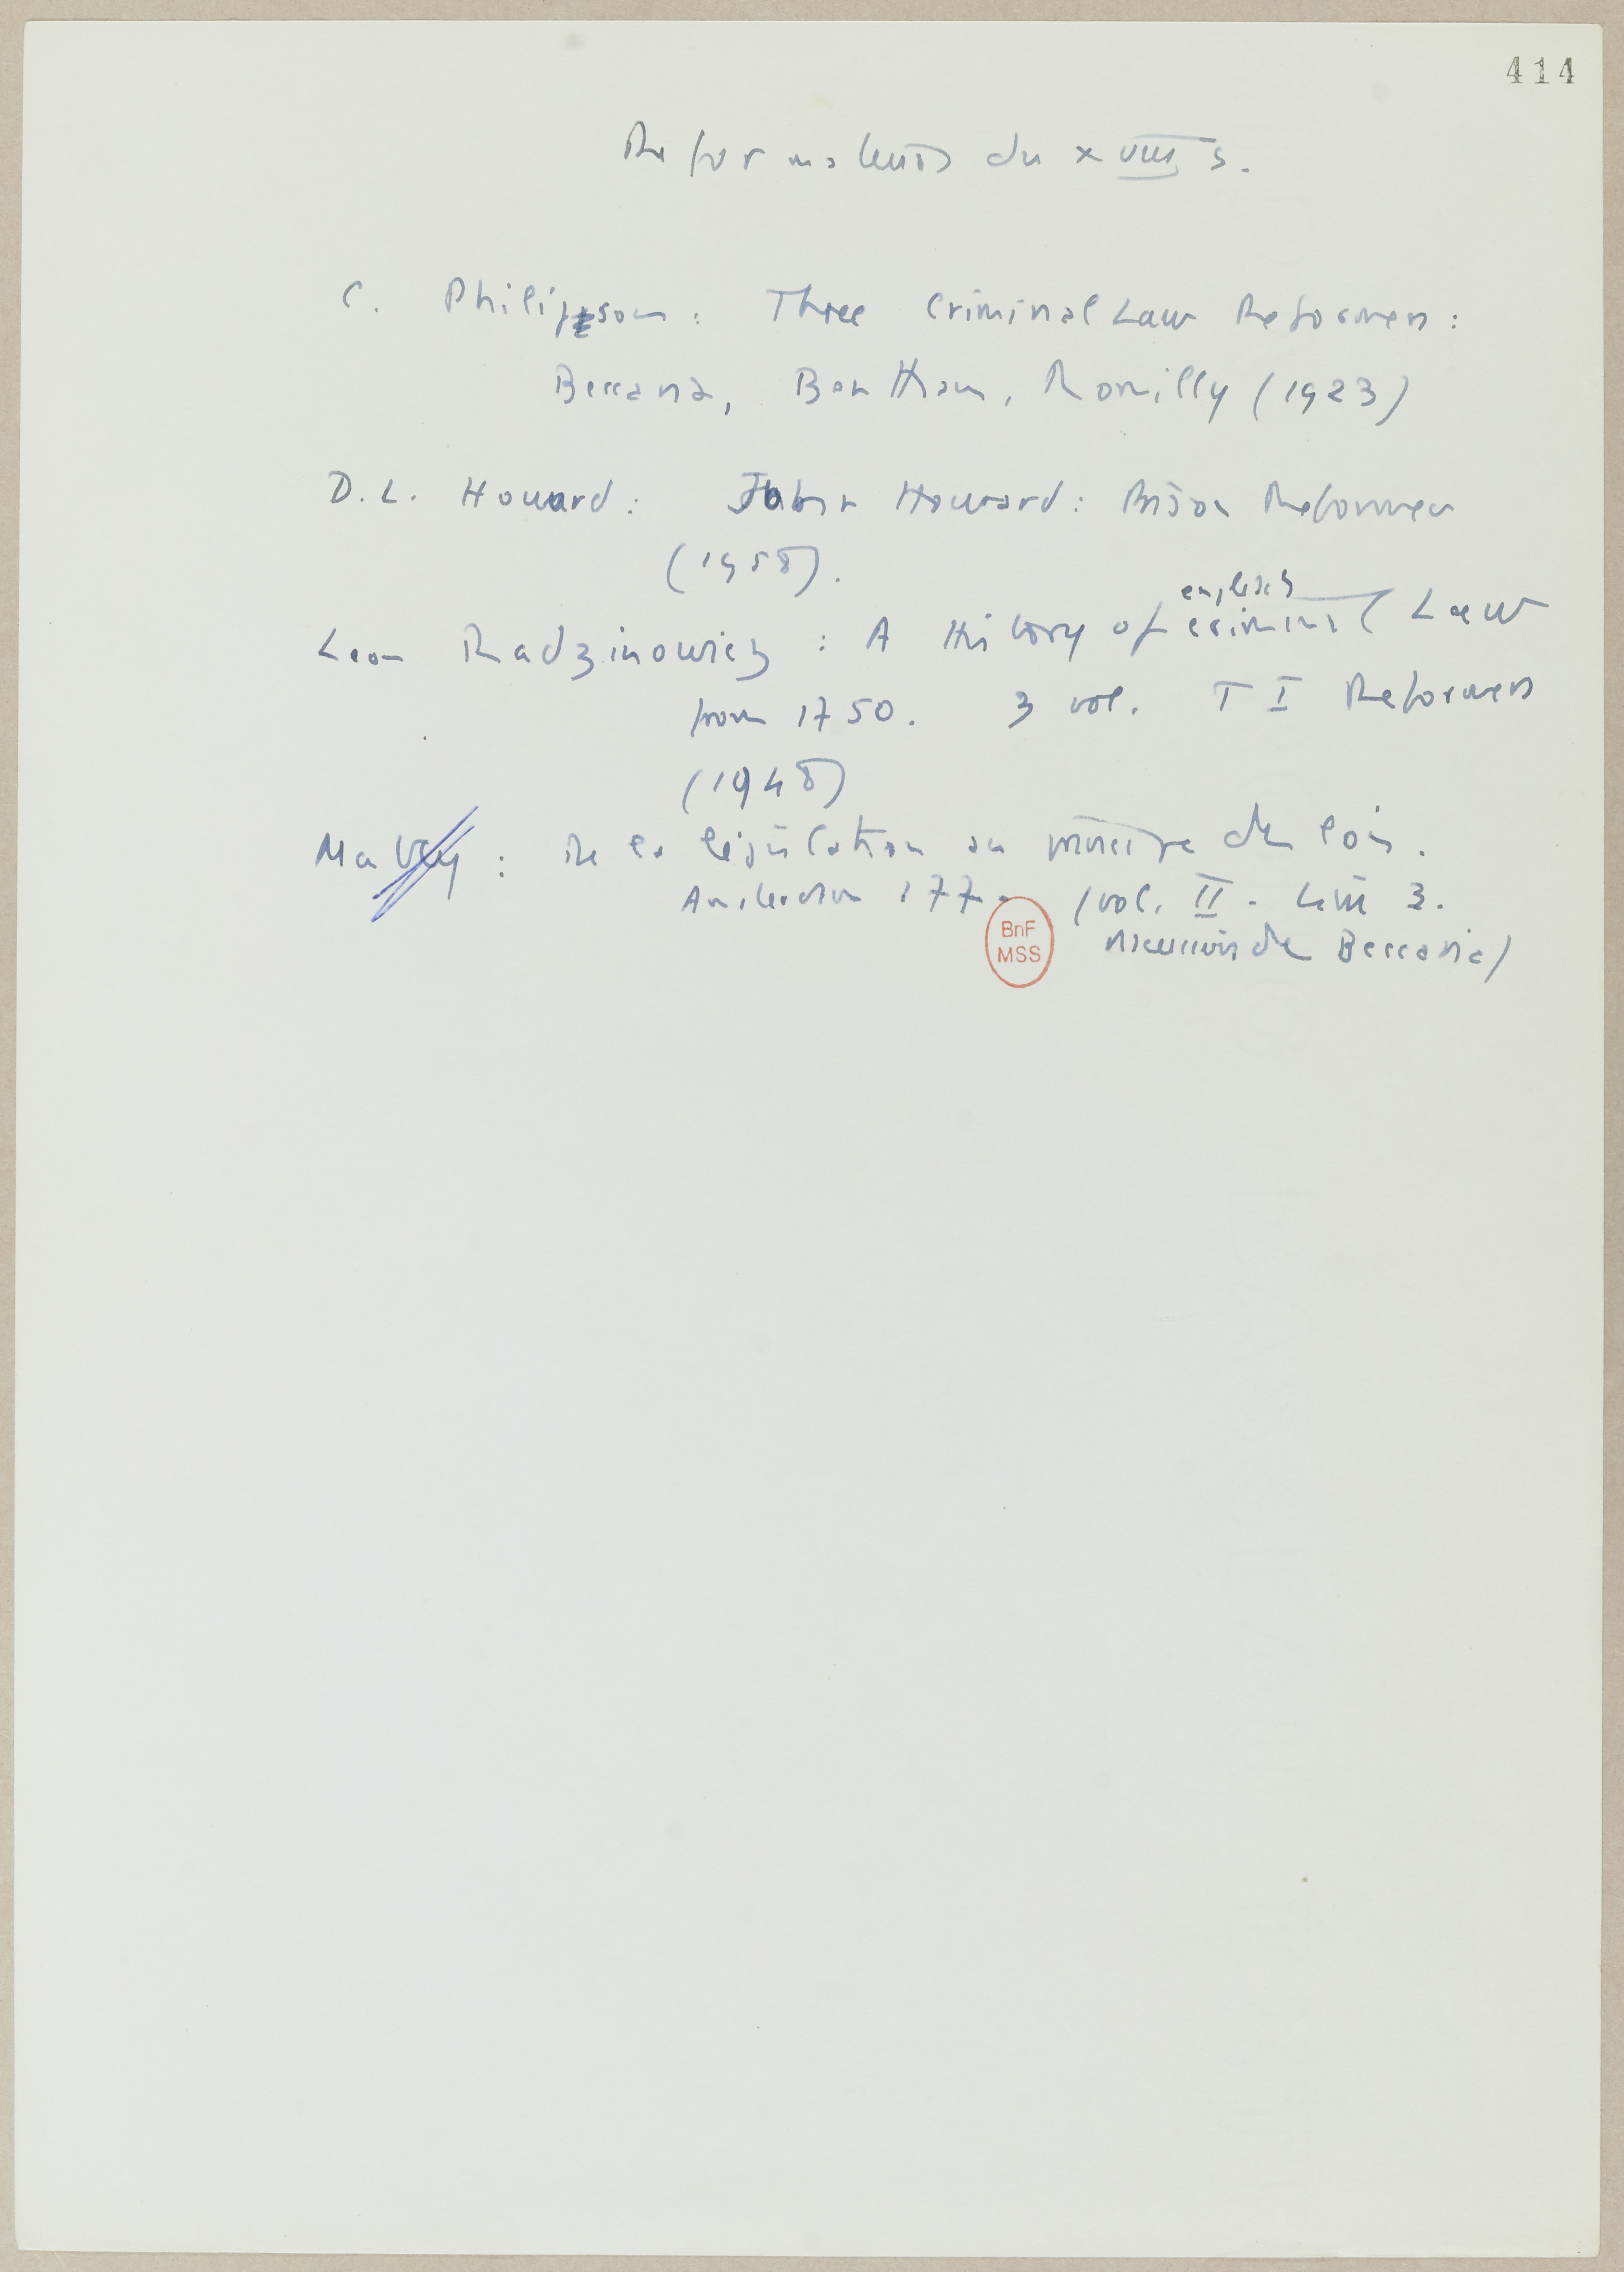 414
Reformateurs du XVIII s.
C. Philipson : Three Criminal Law Reformers :
Beccaria, Bentham, Romilly (1923)
D.L. Howard : John Howard : Prison Reformer
(1958).
english
Leon Radzinowicz : A History of criminal Law
from 1750. 3 vol. T I Reformers
(1948)
Mably : De la législation ou principe des lois.
Amsterdam 177 (vol. II. Livre 3.
discussion de Beccaria)
BnF
MSS